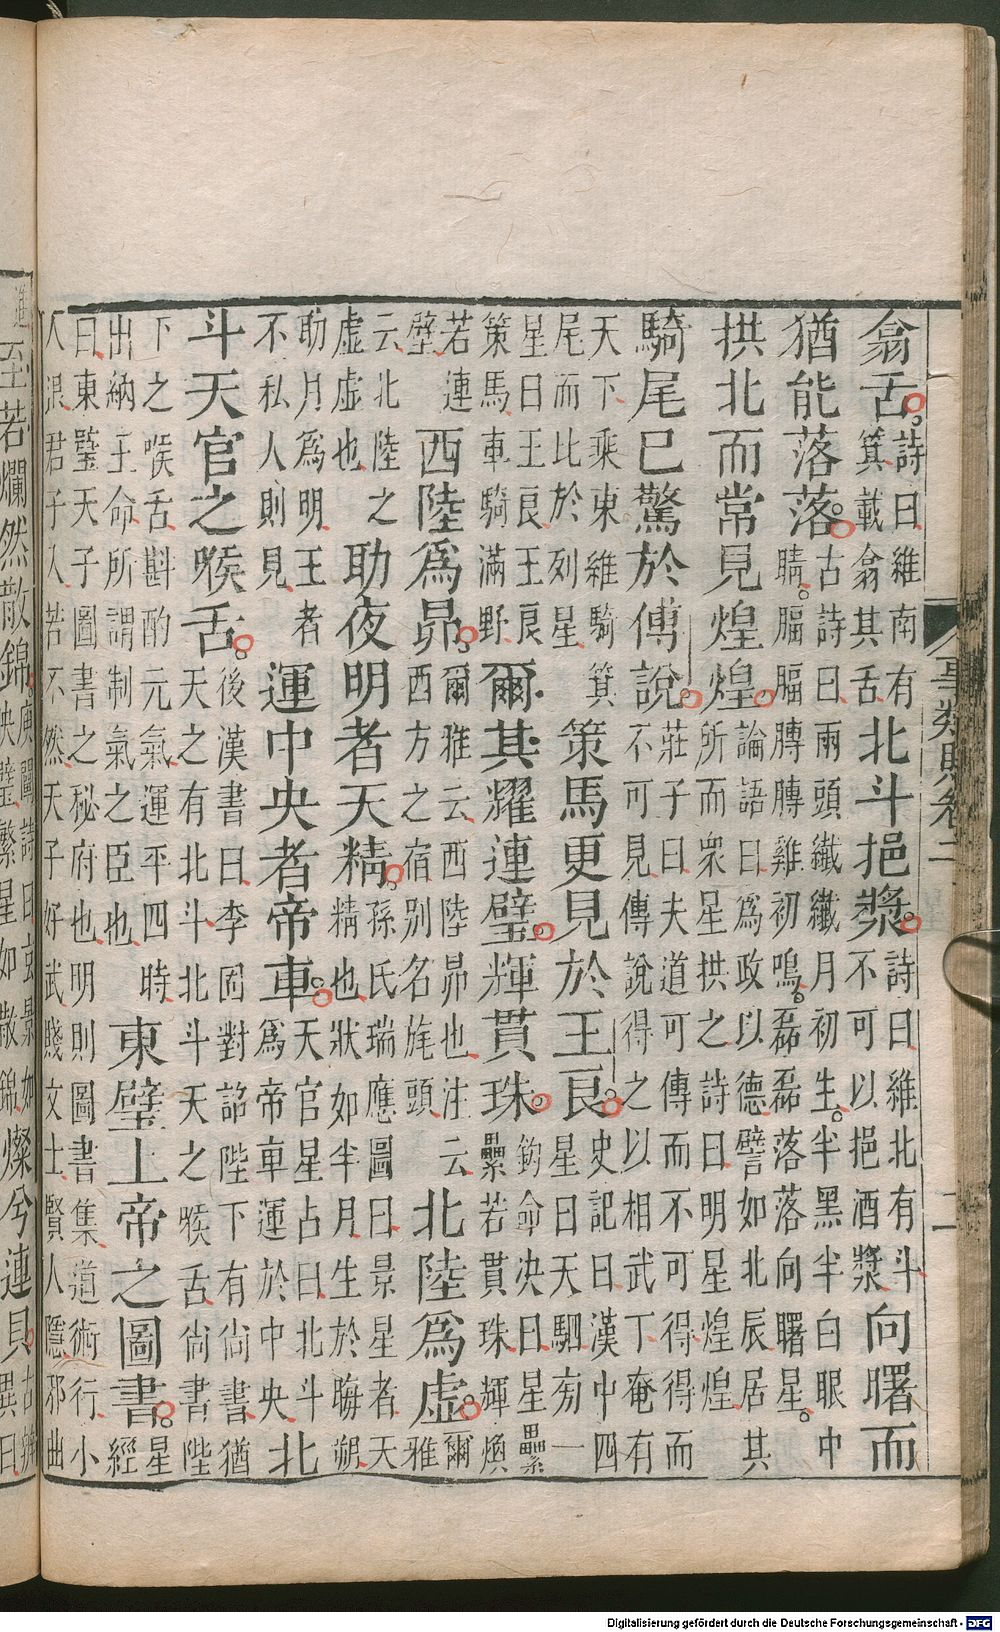 事類賦卷二
翕舌詩曰維南有箕載翕其舌北斗挹漿詩曰維北有斗不可以挹酒漿向曙而
猶能落落古詩曰兩頭纖纖月初生半黑半白眼中睛腷腷膊膊雞初鳴磊磊落落向曙星
拱北而常見煌煌論語曰爲政以德譬如北辰居其所而衆星拱之詩曰明星煌煌
騎尾已驚於傅說莊子曰夫道可傳而不可得得而不可見傅說得之以相武丁奄有
天下乘東維騎箕尾而比於列星策馬更見於王良史記曰漢中四星曰天駟旁一
星曰王良王良策馬車騎滿野爾其耀連璧輝貫珠鉤命决曰星纍纍若貫珠輝煥
若連璧西陸爲昴爾雅云西陸昴也注云西方之宿別名旄頭北陸爲虛爾雅
云北陸之虛虛也助夜明者天精孫氏瑞應圖曰景星者天精也狀如半月生於晦朔
助月爲明王者不私人則見運中央者帝車天官星占曰北斗爲帝車運於中央北
斗天官之喉舌後漢書曰李固對詔陛下有尚書猶天之有北斗北斗天之喉舌尚書陛
下之喉舌斟酌元氣運平四時出納王命所謂制氣之臣也東壁上帝之圖書星經
曰東璧天子圖書之秘府也明則圖書集道術行小人退君子入若不然天子好武賤文士賢人隱邪曲
進至若爛然散錦庾闡詩曰玄景如映璧繁星如散錦燦兮連貝
Digitalisierung gefördert durch die Deutsche Forschungsgemeinschaft - DFG